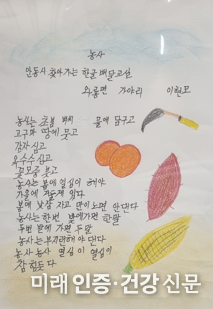 농사
안동시 찾아가는 한글 배달교실
수륜면 가야리 이현모
농사는 초봄 벼씨 물에 담구고
고구마 땅에 묻고
감자 심고
옥수수 심고
농사는 봄에 열심히 해야
가을에 거둘게 있다
봄에 낮잠 자고 많이 노면 안댄다
농사는 한번 밭에가면 한말
두번 밭에 가면 두말
농사는 부지런해야 댄다
농사 농사 열심히 열심히
참 힘든다
미래 인증·건강 신문